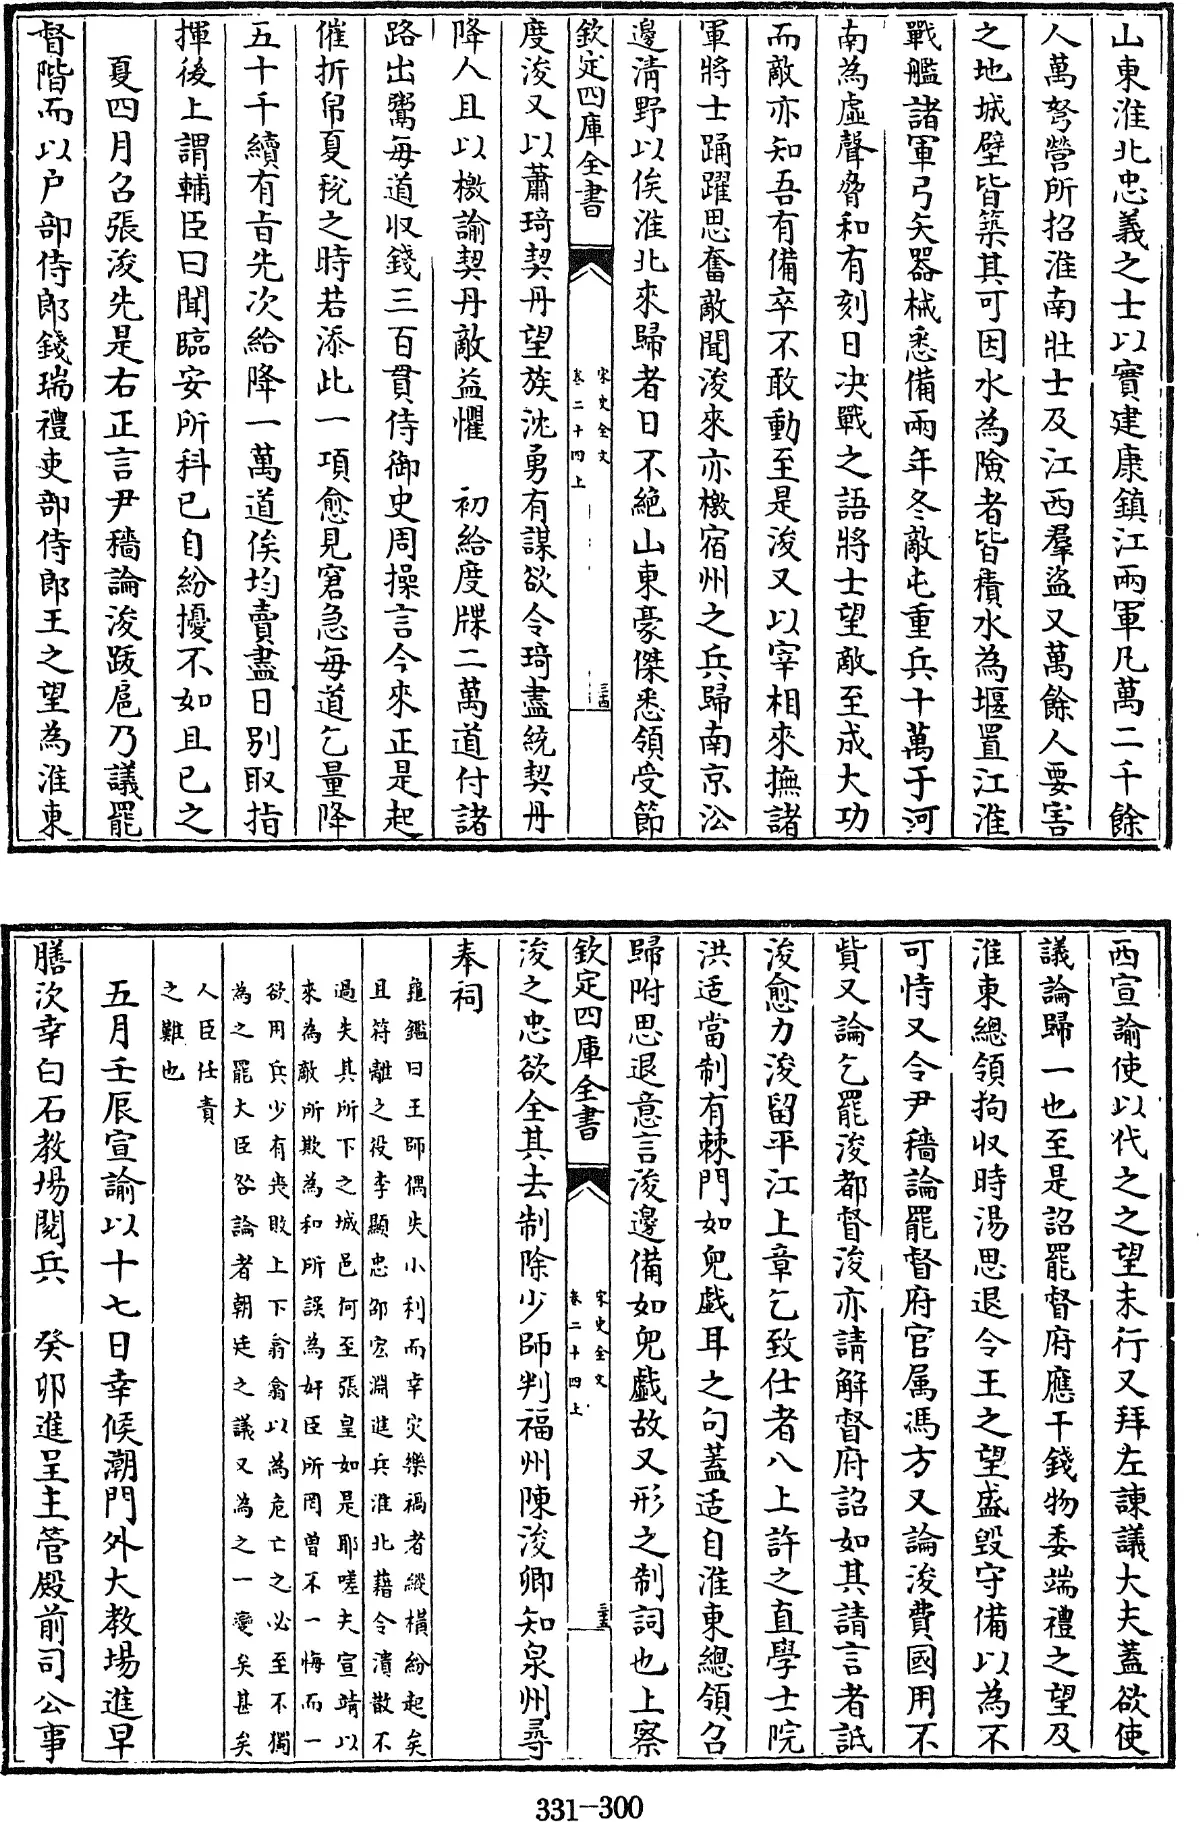 山東淮北忠義之士以實建康鎮江兩軍凡萬二千餘
人萬弩營所招淮南壯士及江西羣盜又萬餘人要害
之地城壁皆築其可因水為險者皆積水為堰置江淮
戰艦諸軍弓矢器械悉備兩年冬敵屯重兵十萬于河
南為虛聲脅和有刻日决戰之語將士望敵至成大功
而敵亦知吾有備卒不敢動至是浚又以宰相來撫諸
軍將士踊躍思奮敵聞浚來亦檄宿州之兵歸南京沿
邊清野以俟淮北來歸者日不絕山東豪傑悉領受節
欽定四庫全書
宋史全文
卷二十四上
三十四
度浚又以蕭琦契丹望族沈勇有謀欲令琦盡統契丹
降人且以檄諭契丹敵益懼 初給度牒二萬道付諸
路出鬻每道収錢三百貫侍御史周操言今來正是起
催折帛夏稅之時若添此一項愈見窘急每道乞量降
五十千續有㫖先次給降一萬道俟均賣盡日别取指
揮後上謂輔臣曰聞臨安所科已自紛擾不如且已之
夏四月召張浚先是右正言尹穡論浚跋扈乃議罷
督階而以户部侍郎錢瑞禮吏部侍郎王之望為淮東
西宣諭使以代之之望未行又拜左諫議大夫蓋欲使
議論歸一也至是詔罷督府應干錢物委端禮之望及
淮東總領拘収時湯思退令王之望盛毀守備以為不
可恃又令尹穡論罷督府官属馮方又論浚費國用不
貲又論乞罷浚都督浚亦請解督府詔如其請言者詆
浚愈力浚留平江上章乞致仕者八上許之直學士院
洪适當制有棘門如兒戯耳之句蓋适自淮東總領召
歸附思退意言浚邊備如兒戯故又形之制詞也上察
欽定四庫全書
宋史全文
卷二十四上
三十五
浚之忠欲全其去制除少師判福州陳浚卿知泉州尋
奉祠
龜鑑曰王師偶失小利而幸灾樂禍者縱横紛起矣
且符離之役李顯忠邵宏淵進兵淮北藉令潰散不
過失其所下之城邑何至張皇如是耶嗟夫宣靖以
來為敵所欺為和所誤為奸臣所罔曾不一悔而一
欲用兵少有喪敗上下翕翕以為危亡之必至不獨
為之罷大臣咎論者朝廷之議又為之一變矣甚矣
人臣任責
之難也
五月壬辰宣諭以十七日幸候潮門外大教塲進早
膳次幸白石教塲閱兵 癸卯進呈主管殿前司公事
331-300